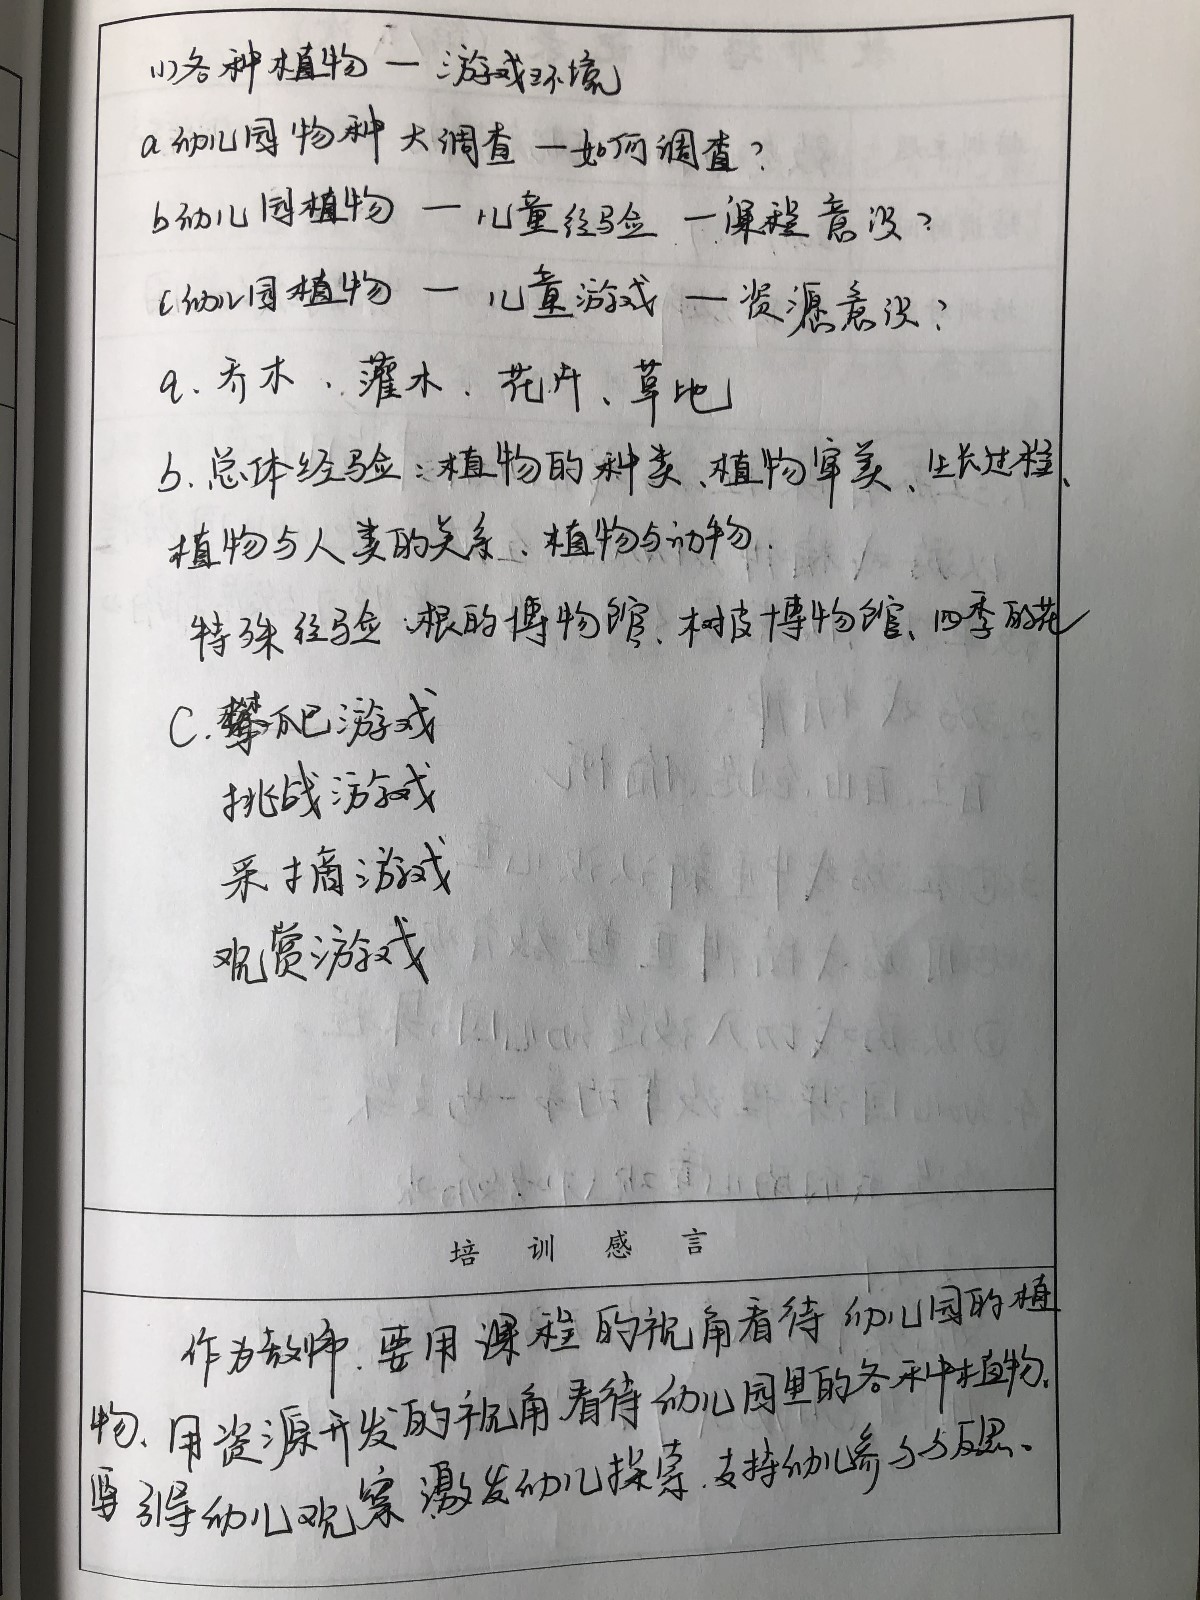 (1)各种植物—游戏环境
a幼儿园物种大调查—如何调查?
b幼儿园植物—儿童经验—课程意识?
c幼儿园植物—儿童游戏—资源意识?
a.乔木、灌木、花卉、草地
b.总体经验:植物的种类、植物审美、生长过程、
植物与人类的关系、植物与动物.
特殊经验:根的博物馆、树皮博物馆、四季的花
C.攀爬游戏
挑战游戏
采摘游戏
观赏游戏
培训感言
作为教师,要用课程的视角看待幼儿园的植
物、用资源开发的视角看待幼儿园里的各种植物.
要引导幼儿观察,激发幼儿探索,支持幼儿参与与反思.